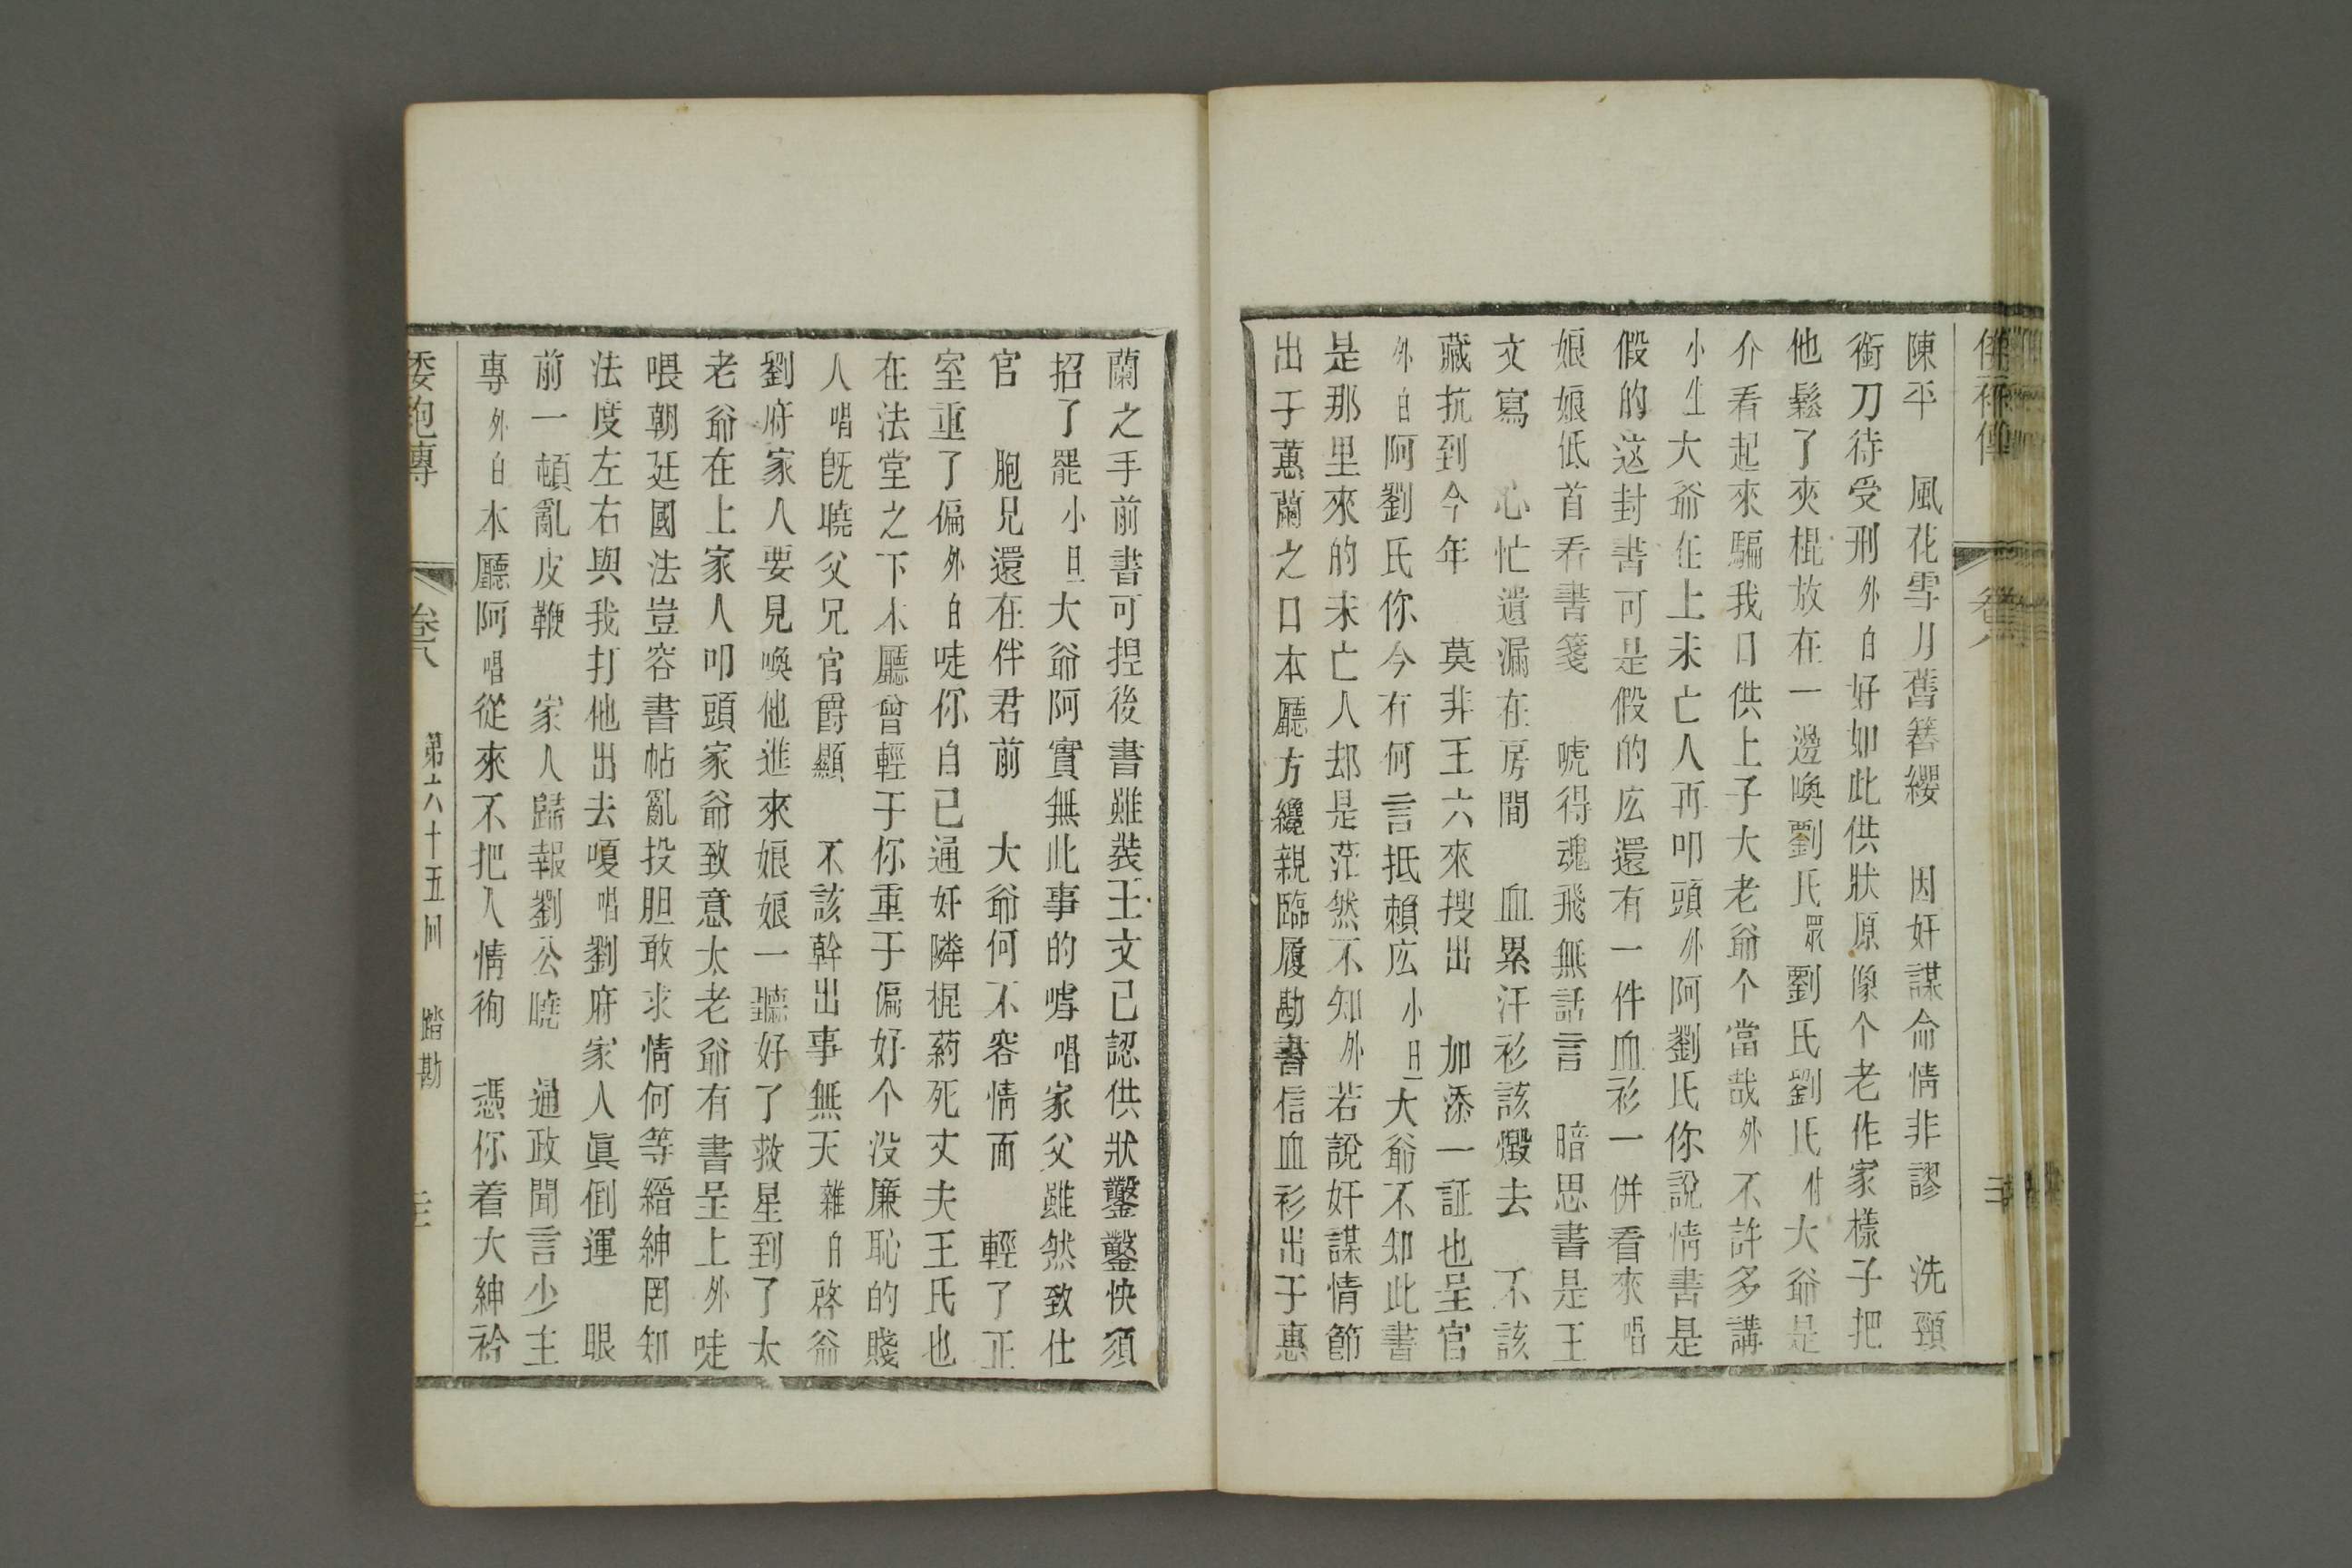 陳平　風花雪月舊簪纓　因奸謀命情非謬　洗頸
銜刀待受刑外白好如此供狀原像个老作家樣子把
他鬆了夾棍放在一邊喚劉氏眾劉氏劉氏付大爺是
介看起來騙我口供上子大老爺个當哉外不許多講
小生大爺在上未亡人再叩頭外阿劉氏你說情書是
假的这封書可是假的広還有一件血衫一併看來唱
娘娘低首看書箋　唬得魂飛無話言　暗思書是王
文寫　心忙遺漏在房間　血累汗衫該燬去　不該
藏抗到今年　莫非王六來搜出　加添一証也呈官
外白阿劉氏你今有何言抵賴広小旦大爺不知此書
是那里來的未亡人却是茫然不知外若說奸謀情節
出于蕙蘭之口本廳方纔親臨履勘書信血衫出于惠
蘭之手前書可捏後書雖裝王文已認供狀鑿鑿快須
招了罷小旦大爺阿實無此事的嘑唱家父雖然致仕
官　胞兄還在伴君前　大爺何不容情面　輕了正
室重了偏外白哇你自已通奸隣棍葯死丈夫王氏也
在法堂之下本廳曾輕于你重于偏好个没廉恥的賤
人唱旣曉父兄官爵顯　不該幹出事無天雜白啓爺
劉府家人要見喚他進來娘娘一聽好了救星到了太
老爺在上家人叩頭家爺致意太老爺有書呈上外哇
喂朝廷國法豈容書帖亂投胆敢求情何等縉紳罔知
法度左右與我打他出去嗄唱劉府家人眞倒運　眼
前一頓亂皮鞭　家人歸報劉公曉　通政聞言少主
專外白本廳阿唱從來不把人情徇　憑你着大紳衿
倭袍傳　卷八　第六十五回　踏勘